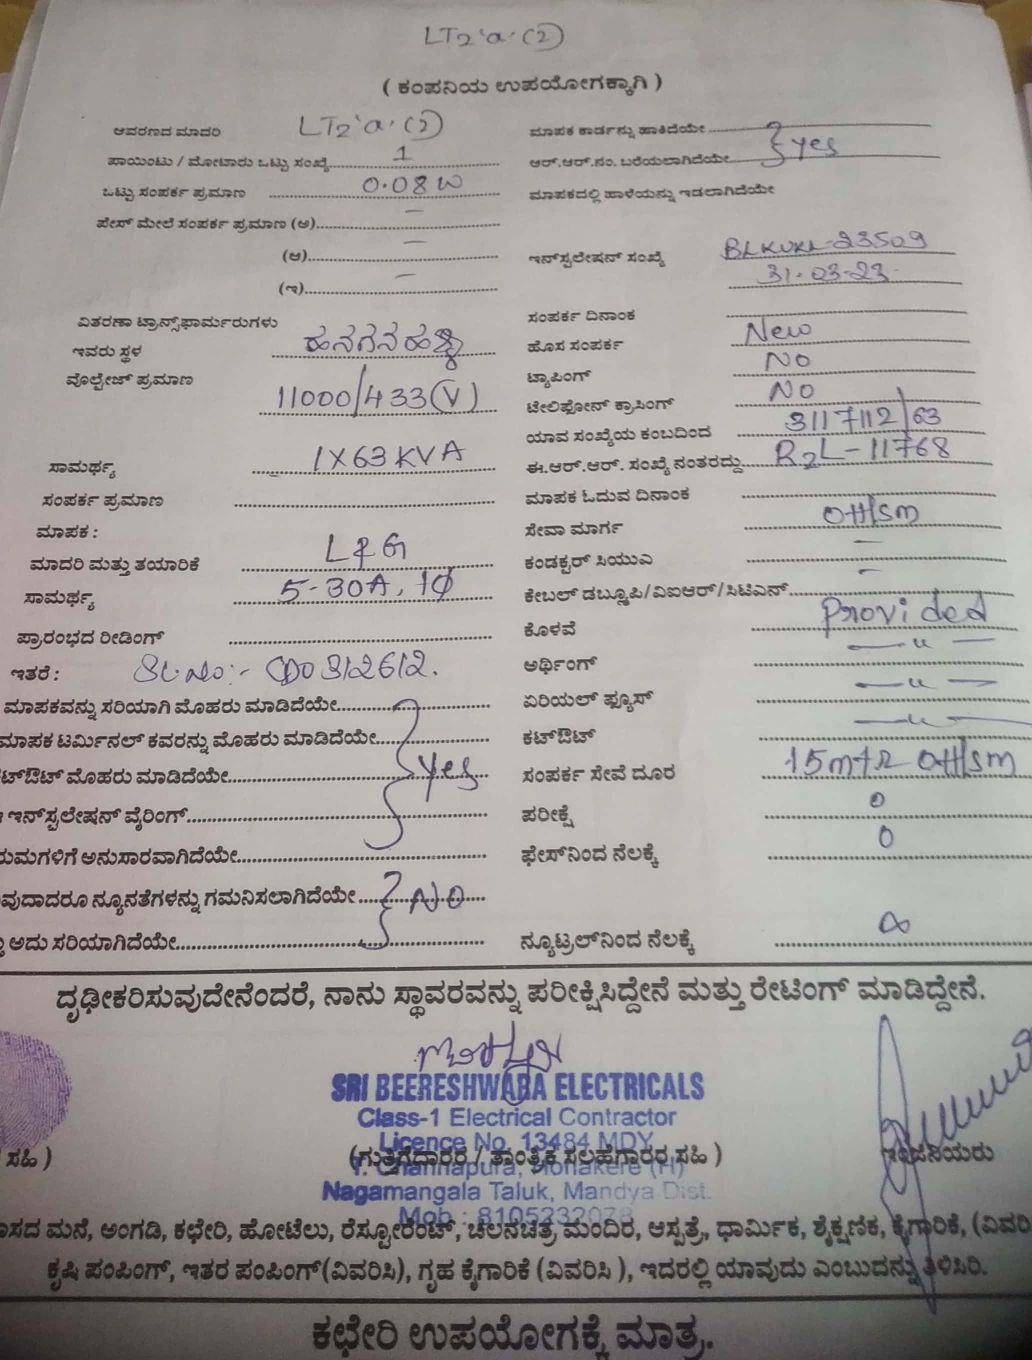 LT2 'a' (2)
( ಕಂಪನಿಯ ಉಪಯೋಗಕ್ಕಾಗಿ )
ಆವರಣದ ಮಾದರಿ LT2 'a' (2)
ಮಾಪಕ ಕಾರ್ಡನ್ನು ಹಾಕಿದೆಯೇ
ಪಾಯಿಂಟು / ಮೋಟಾರು ಒಟ್ಟು ಸಂಖ್ಯೆ 1
ಆರ್.ಆರ್.ನಂ. ಬರೆಯಲಾಗಿದೆಯೇ yes
ಒಟ್ಟು ಸಂಪರ್ಕ ಪ್ರಮಾಣ 0.08 W
ಮಾಪಕದಲ್ಲಿ ಹಾಳೆಯನ್ನು ಇಡಲಾಗಿದೆಯೇ
ಪೇಸ್ ಮೇಲೆ ಸಂಪರ್ಕ ಪ್ರಮಾಣ (ಅ) –
(ಆ) –
ಇನ್‌ಸ್ಟಲೇಷನ್ ಸಂಖ್ಯೆ 23509
31-03-23
(ಇ) –
ಸಂಪರ್ಕ ದಿನಾಂಕ
ವಿತರಣಾ ಟ್ರಾನ್ಸ್‌ಫಾರ್ಮರುಗಳು
ಇವರು ಸ್ಥಳ
ಹೊಸ ಸಂಪರ್ಕ New
ವೊಲ್ಟೇಜ್ ಪ್ರಮಾಣ 11000/433(V)
ಟ್ಯಾಪಿಂಗ್ NO
ಟೇಲಿಫೋನ್ ಕ್ರಾಸಿಂಗ್ NO
ಯಾವ ಸಂಖ್ಯೆಯ ಕಂಬದಿಂದ
ಸಾಮರ್ಥ್ಯ 1X63KVA
ಈ.ಆರ್.ಆರ್. ಸಂಖ್ಯೆ ನಂತರದ್ದು R2L-11768
ಸಂಪರ್ಕ ಪ್ರಮಾಣ
ಮಾಪಕ ಓದುವ ದಿನಾಂಕ
ಮಾಪಕ :
ಸೇವಾ ಮಾರ್ಗ OH/SM
ಮಾದರಿ ಮತ್ತು ತಯಾರಿಕೆ L&G
ಕಂಡಕ್ಟರ್ ಸಿಯುಎ –
ಸಾಮರ್ಥ್ಯ 5-30A, 1Ø
ಕೇಬಲ್ ಡಬ್ಲ್ಯೂಪಿ/ವಿಐಆರ್/ಸಿಟಿಎಸ್ –
ಪ್ರಾರಂಭದ ರೀಡಿಂಗ್
ಕೊಳವೆ Provided
ಇತರೆ : Sl.No:-
ಅರ್ಥಿಂಗ್ –"–
ಮಾಪಕವನ್ನು ಸರಿಯಾಗಿ ಮೊಹರು ಮಾಡಿದೆಯೇ
ಏರಿಯಲ್ ಫ್ಯೂಸ್ –"–
ಮಾಪಕ ಟರ್ಮಿನಲ್ ಕವರನ್ನು ಮೊಹರು ಮಾಡಿದೆಯೇ
ಕಟ್‌ಔಟ್ –"–
ಟ್‌ಔಟ್ ಮೊಹರು ಮಾಡಿದೆಯೇ yes
ಸಂಪರ್ಕ ಸೇವೆ ದೂರ 15mtr OH/SM
ಇನ್‌ಸ್ಟಲೇಷನ್ ವೈರಿಂಗ್
ಪರೀಕ್ಷೆ 0
ಯಮಗಳಿಗೆ ಅನುಸಾರವಾಗಿದೆಯೇ
ಫೇಸ್‌ನಿಂದ ನೆಲಕ್ಕೆ 0
ವುದಾದರೂ ನ್ಯೂನತೆಗಳನ್ನು ಗಮನಿಸಲಾಗಿದೆಯೇ NO
ಅದು ಸರಿಯಾಗಿದೆಯೇ
ನ್ಯೂಟ್ರಲ್‌ನಿಂದ ನೆಲಕ್ಕೆ ∞
ದೃಢೀಕರಿಸುವುದೇನೆಂದರೆ, ನಾನು ಸ್ಥಾವರವನ್ನು ಪರೀಕ್ಷಿಸಿದ್ದೇನೆ ಮತ್ತು ರೇಟಿಂಗ್ ಮಾಡಿದ್ದೇನೆ.
SRI BEERESHWARA ELECTRICALS
Class-1 Electrical Contractor
Licence No. 13484 MDY
ಸಹಿ )
(ಗುತ್ತಿಗೆದಾರರ / ತಾಂತ್ರಿಕ ಸಲಹೆಗಾರರ ಸಹಿ )
ಇಂಜಿನಿಯರು
Nagamangala Taluk, Mandya Dist.
ಾಸದ ಮನೆ, ಅಂಗಡಿ, ಕಛೇರಿ, ಹೋಟೆಲು, ರೆಸ್ಟೋರೆಂಟ್, ಚಲನಚಿತ್ರ ಮಂದಿರ, ಆಸ್ಪತ್ರೆ, ಧಾರ್ಮಿಕ, ಶೈಕ್ಷಣಿಕ, ಕೈಗಾರಿಕೆ, (ವಿವರಿ
ಕೃಷಿ ಪಂಪಿಂಗ್, ಇತರ ಪಂಪಿಂಗ್(ವಿವರಿಸಿ), ಗೃಹ ಕೈಗಾರಿಕೆ (ವಿವರಿಸಿ ), ಇದರಲ್ಲಿ ಯಾವುದು ಎಂಬುದನ್ನು ತಿಳಿಸಿರಿ.
ಕಛೇರಿ ಉಪಯೋಗಕ್ಕೆ ಮಾತ್ರ.